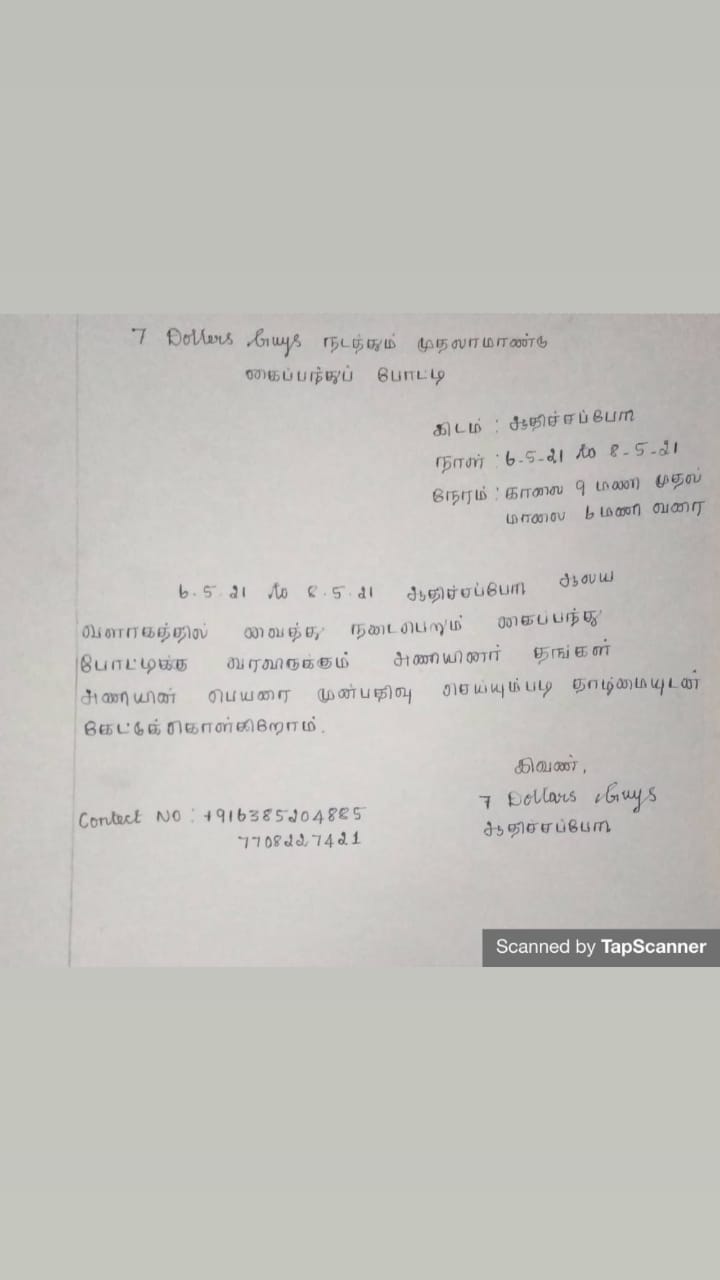 7 Dollers Guys நடத்தும் முதலாமாண்டு
கைப்பந்துப் போட்டி
இடம் : ஆதிச்சப்பேரி
நாள் : 6-5-21 to 8-5-21
நேரம் : காலை 9 மணி முதல்
மாலை 6 மணி வரை
6.5.21 to 8.5.21 ஆதிச்சப்பேரி ஆலய
வளாகத்தில் வைத்து நடைபெறும் கைப்பந்து
போட்டிக்கு வரவிருக்கும் அணியினர் தங்கள்
அணியின் பெயரை முன்பதிவு செய்யும்படி தாழ்மையுடன்
கேட்டுக்கொள்கிறோம்.
இவண்,
7 Dollars Guys
ஆதிச்சப்பேரி
Contect NO : +916385204885
7708227421
Scanned by TapScanner